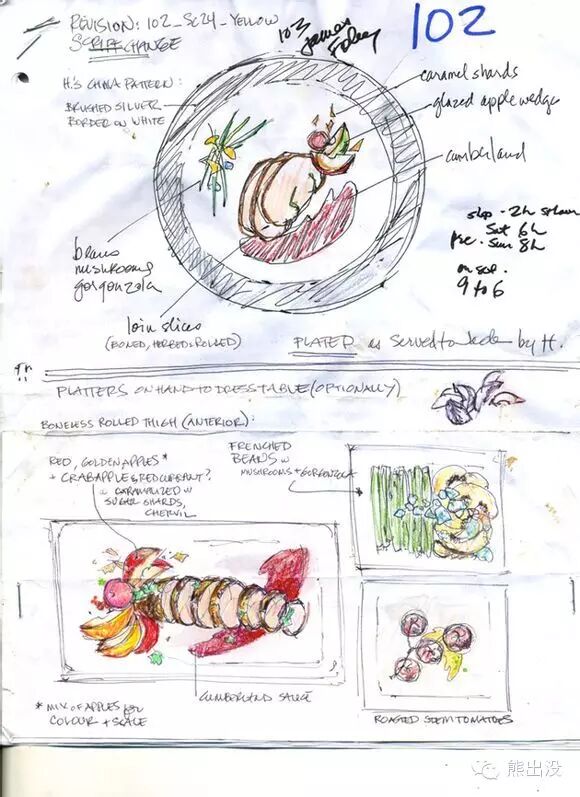 REVISION: 102_SC24_YELLOW
SCRIPT CHANGE
103
James Foley
102
H.'S CHINA PATTERN:
BRUSHED SILVER
BORDER ON WHITE
caramel shards
glazed apple wedge
cumberland
Sat 6h
Sun 8h
9 to 6
beans
mushrooms
gorgonzola
loin slices
(BONED, HERBED & ROLLED)
PLATED as served to Jack by H.
PLATTERS ON HAND TO DRESS TABLE (OPTIONALLY)
BONELESS ROLLED THIGH (ANTERIOR):
RED, GOLDEN APPLES*
+ CRABAPPLE & RED CURRANT?
CARAMALIZED W
SUGAR SHARDS,
CHERVIL
FRENCHED
BEANS W
MUSHROOMS + GORGONZOLA
CUMBERLAND SAUCE
* MIX OF APPLES FOR
COLOUR + SCALE
ROASTED STEM TOMATOES
熊出没